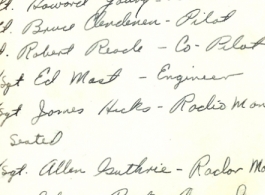 Lt. Howard Young
Lt. Bruce Clendenen - Pilot
Lt. Robert Reade - Co-Pilot
Sgt Ed Mast - Engineer
Sgt James Hicks - Radio Man
Seated
Sgt. Allen Guthrie - Radar Mo